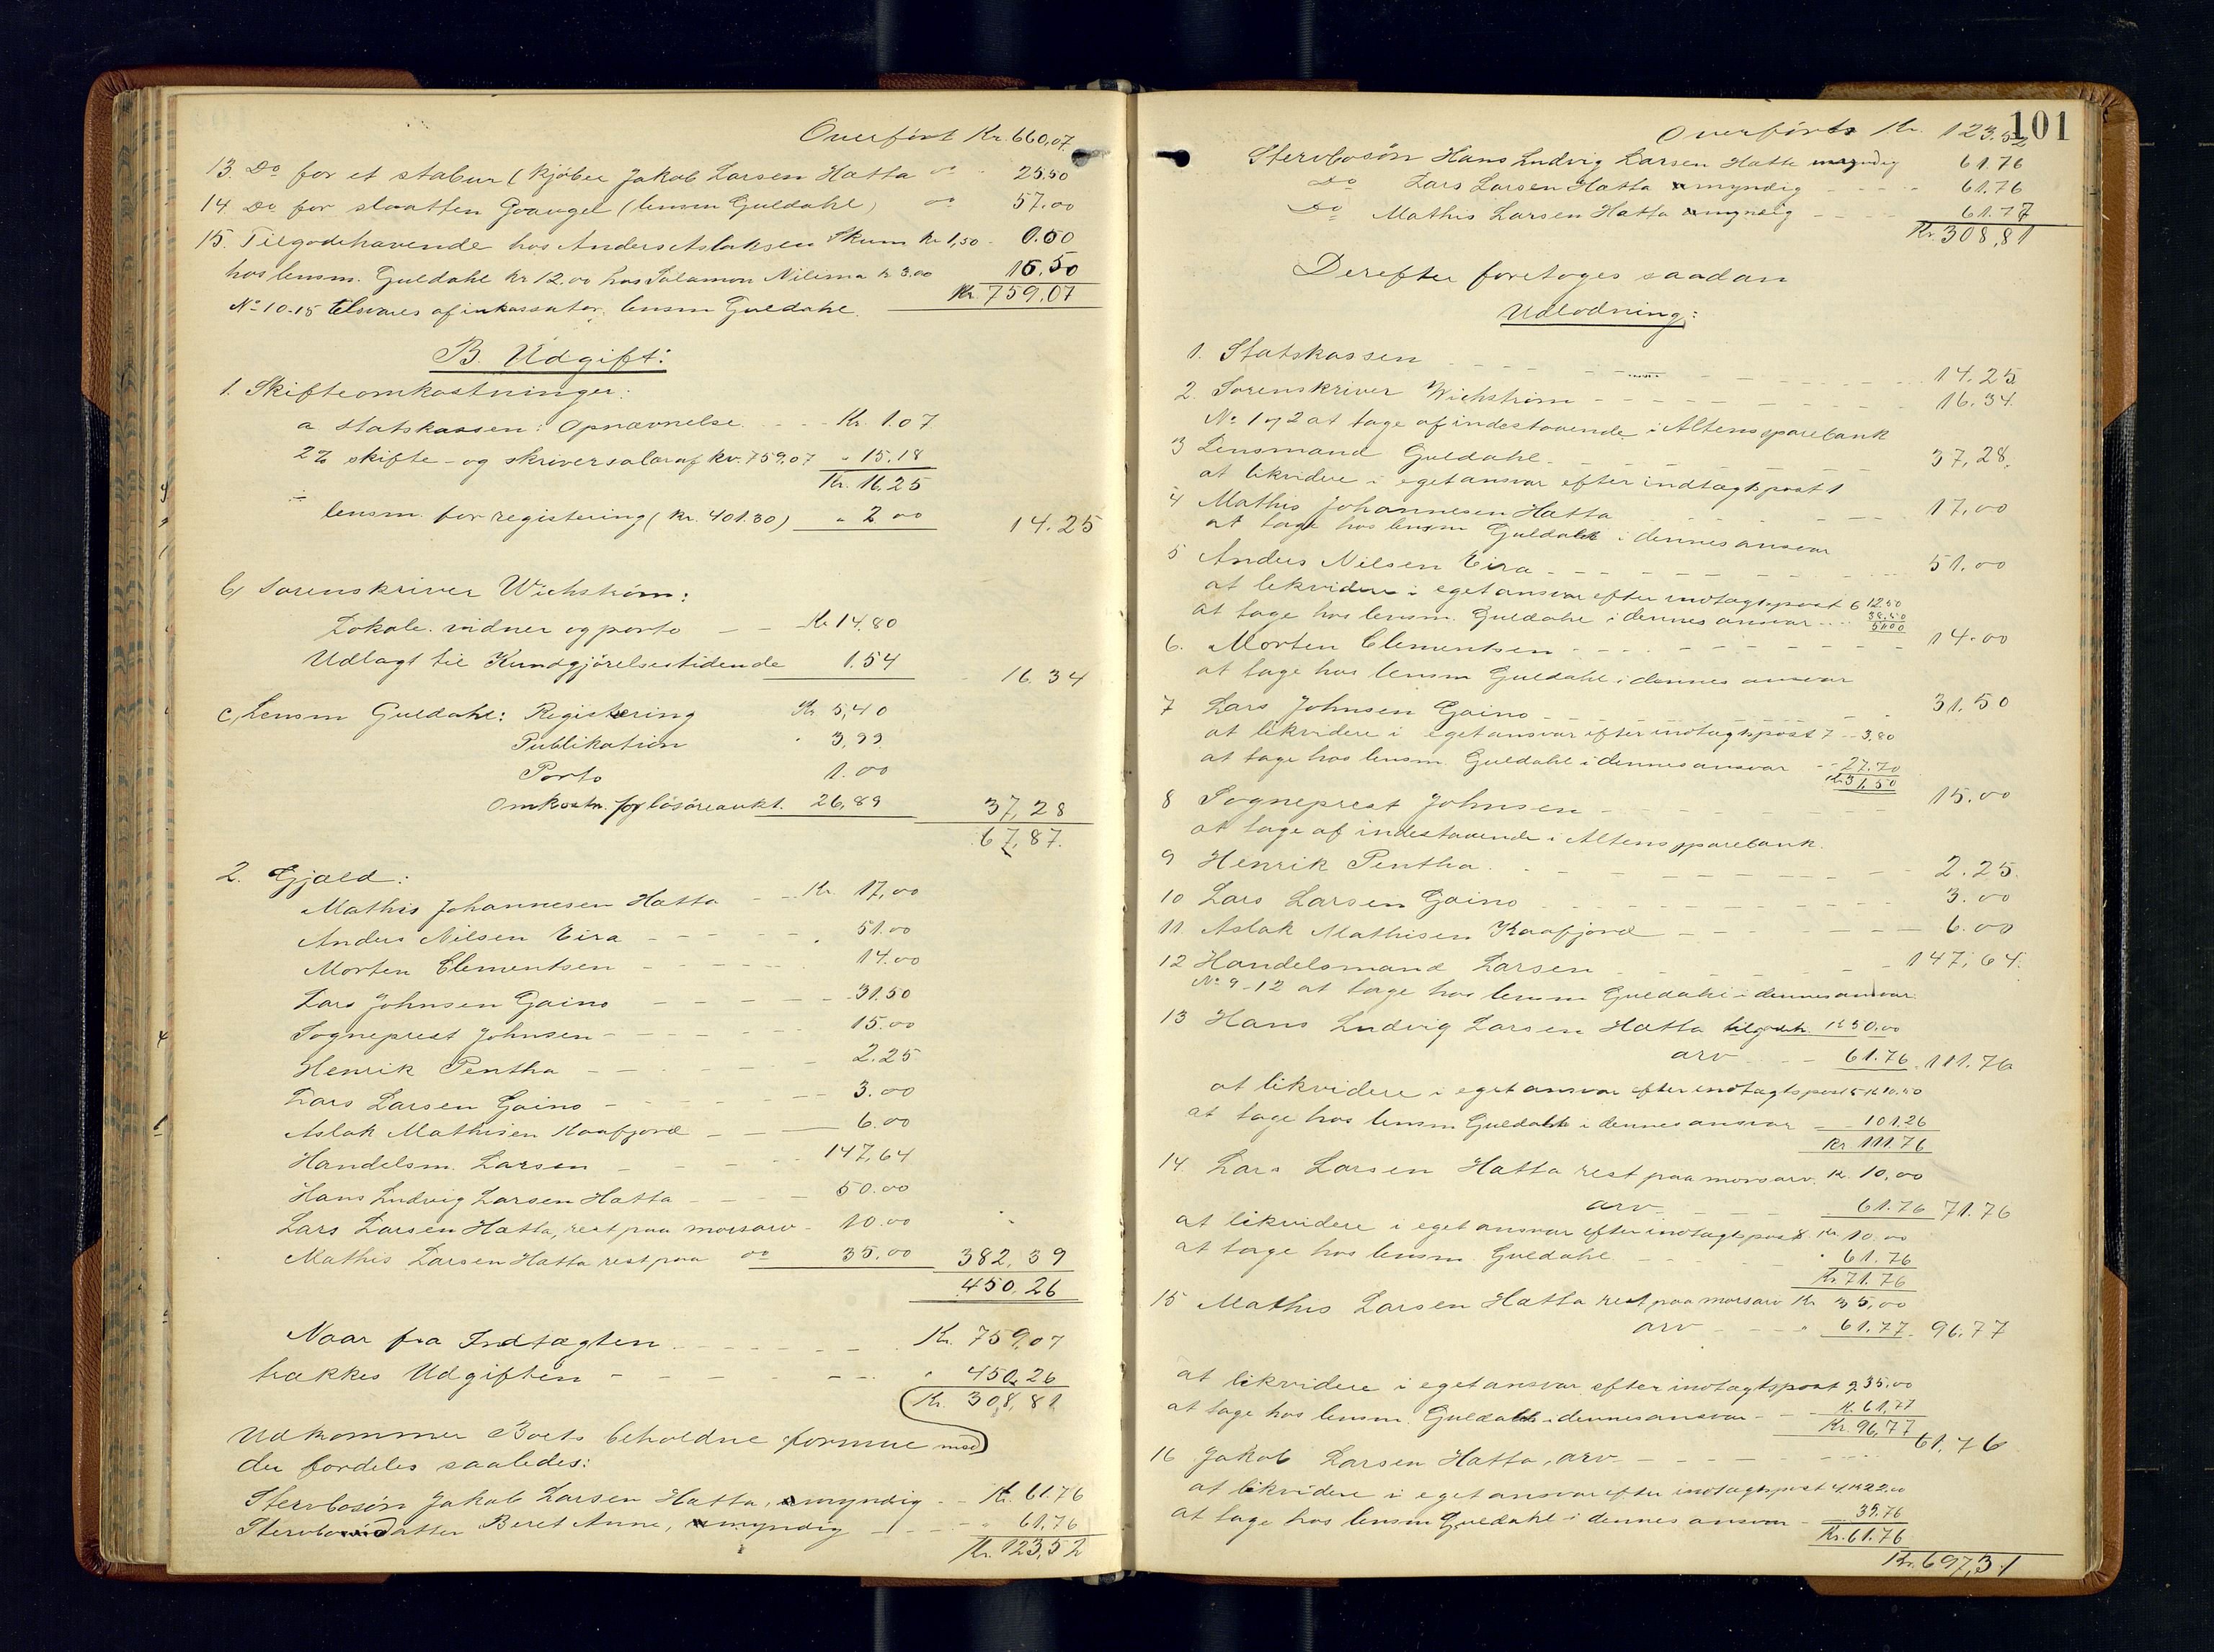 Overført Kr. 660,07
13. Do for et stabur (kjøber Jakob Larsen Hætta " - 25.50
14. Do for slaatten Goaugel (lensm Guldahl) " 57.00
15. Tilgodehavende hos Anders Aslaksen Skum kr 1,50 - 0.50
hos lensm. Guldahl kr 12,00 hos Salamon Nilsen kr 3.00 16,50
No 10-15 tilsvares af inkassator, lensm Guldahl. Kr. 759,07
B. Udgift:
1. Skifteomkostninger:
a Statskassen: Opnævnelse - - - Kr. 1.07
2% skifte- og skriversalær af kr. 759,07 - 15.18
Kr. 16.25
÷ lensm. for registering (kr. 401.30) - 2 00 14.25
b, Sorenskriver Wichstrøm:
Lokale, vidner og porto - - Kr 14,80
Udlagt til Kundgjørelsestidende 1.54 16.34
c, Lensm Guldahl: Registering Kr 5,40
Publikation " 3,99
Porto 1.00
Omkostn. for løsøreaukt. 26,89 37,28
67,87.
2. Gjæld:
Mathis Johannesen Hætta - - Kr. 17,00
Anders Nilsen Eira - - - - - 51.00
Morten Clementsen - - - - - 14.00
Lars Johnsen Gaino - - - - - 31.50
Sogneprest Johnsen - - - - - 15.00
Henrik Pentha - - - - - 2.25
Lars Larsen Gaino - - - - - 3.00
Aslak Mathisen Kaafjord - - - 6.00
Handelsm. Larsen - - - - 147,64
Hans Ludvig Larsen Hætta - - - - 50.00
Lars Larsen Hætta, rest paa morsarv - 10.00
Mathis Larsen Hætta rest paa " 35,00 382,39
450,26
Naar fra Indtægten - - - - - - Kr. 759,07
trækkes Udgiften - - - - - - - " 450,26
Kr. 308,81
Udkommer Boets beholdne formue med
der fordeles saaledes:
Stervbosøn Jakob Larsen Hætta, myndig - - Kr. 61.76
Stervbodatter Beret Anne, myndig - - - " 61,76
Kr. 123,52
101
Overført Kr. 123,52
Stervbosøn Hans Ludvig Larsen Hætta myndig 61.76
Do Lars Larsen Hætta myndig - - - - 61.76
Do Mathis Larsen Hætta myndig - - - - 61.77
Kr. 308,81
Derefter foretoges saadan
Udlodning:
1. Statskassen - - - - - - - - - 14.25
2. Sorenskriver Wichstrøm - - - - - - - - 16.34
No 1 og 2 at tage af indestaaende i Altens sparebank
3 Lensmand Guldahl - - - - - - - 37,28,
at likvidere i eget ansvar efter indtægtspost 1
4 Mathis Johannesen Hætta - - - - - - 17,00
at tage hos lensm Guldahl i dennes ansvar
5 Anders Nilsen Eira - - - - - - - - - 51.00
at likvidere i eget ansvar efter indtægtspost 6 12.50
at tage hos lensm. Guldahl i dennes ansvar - - - 38,50
51.00
6. Morten Clementsen - - - - - - - - 14.00
at tage hos lensm Guldahl i dennes ansvar
7 Lars Johnsen Gaino - - - - - - - - 31.50
at likvidere i eget ansvar efter indtægtspost 7 - - 3,80
at tage hos lensm. Guldahl i dennes ansvar - - 27.70
Kr 31.50
8 Sogneprest Johnsen - - - - - - - 15.00
at tage af indestaaende i Altens sparebank.
9 Henrik Pentha - - - - - - - - - 2.25.
10 Lars Larsen Gaino - - - - - - - - - 3.00
11 Aslak Mathisen Kaafjord - - - - - - - 6.00
12 Handelsmand Larsen - - - - - - - 147,64.
No 9-12 at tage hos lensm Guldahl i dennes ansvar.
13 Hans Ludvig Larsen Hætta tilgodeh. Kr 50,00
arv - - - 61.76 111.76
at likvidere i eget ansvar efter indtægtspost 5 kr 10.50
at tage hos lensm Guldahl i dennes ansvar - - 101.26
Kr 111.76
14. Lars Larsen Hætta rest paa morsarv. Kr. 10,00
arv - - - - 61.76 71.76
at likvidere i eget ansvar efter indtægtspost 8. Kr 10.00
at tage hos lensm. Guldahl - - - - " 61.76
Kr. 71.76
15 Mathis Larsen Hætta rest paa morsarv Kr 35,00
arv - - - " 61.77. 96.77
at likvidere i eget ansvar efter indtægtspost 9 35,00
at tage hos lensm. Guldahl i dennes ansvar - - Kr. 61,77
Kr. 96,77
16 Jakob Larsen Hætta, arv - - - - - - - 61.76
at likvidere i eget ansvar efter indtægtspost 4 Kr 22.00
at tage hos lensm Guldahl i dennes ansvar - 39.76
Kr. 61.76
Kr. 697,31